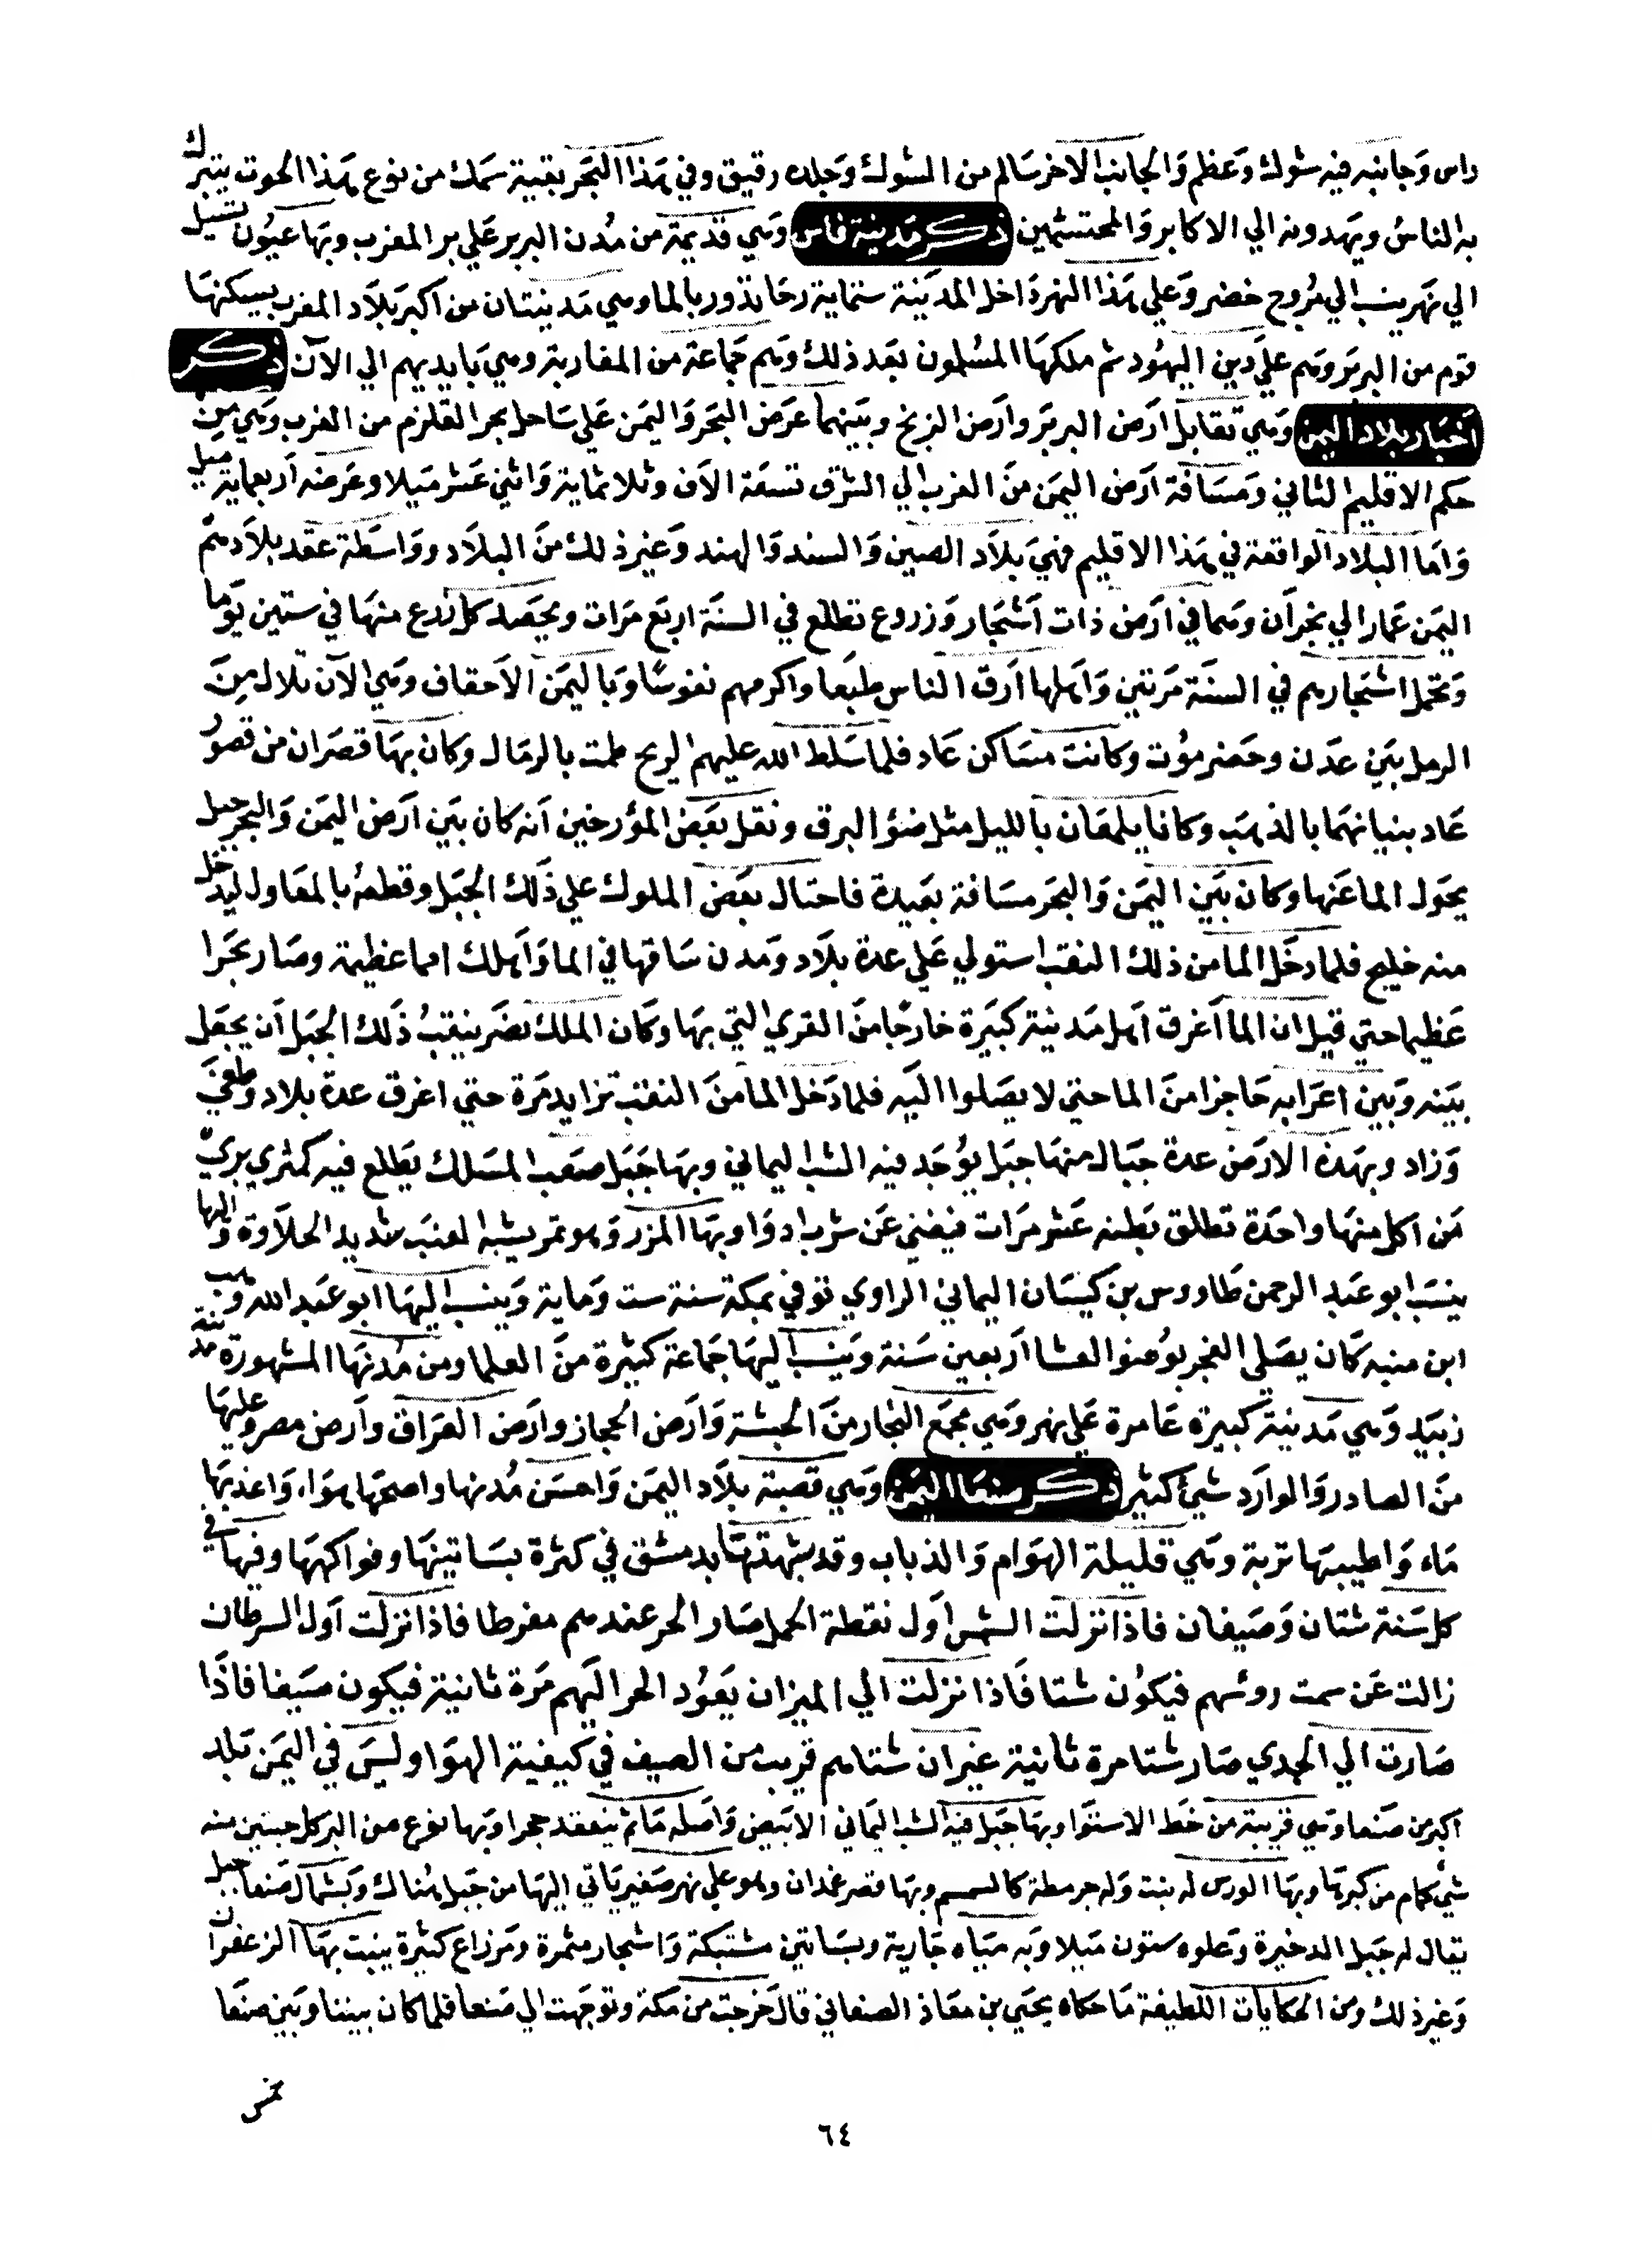 راس وَجانبه فيه شوك وَعظم وَالجانب الاخر سَالم من الشوك وَجلده رقيق وفي هَذا البَحر بقية سَمك من نوع هَذا الحوت يتبرك
به الناس ويَهدونه الي الاكابر وَالمحتشمين ذكر مَدينة فاس وَهي قديمة من مُدن البربر عَلي بر المغرب وبهَا عيُون تسيل
الي نَهر ينسب الي مُروج خضر وَعلي هَذا النهر دَاخل المدَينة ستماية رحَا تدور بالما وهي مَدينتان من اكبر بَلاد المغرب يسكنهَا
قوم من البربَر وَهم علي دين اليهُود ثم ملكهَا المسُلمون بَعد ذلك وَهم جَماعة من المغاربة وهي بَايديهم الي الآن ذكر
اَخبَار بلاد اليمن وَهي تقابل ارَض البربَر وارَض الزنج وبَينهما عرَض البَحر وَاليمَن عَلي سَاحل بحر القلزم من الغرب وَهي مِن
حَكم الاقليم الثاني وَمسَافة ارَض اليمَن منَ الغرب الي الشرق تسَعَة الاَف وثلاثماية وَاثني عَشر مَيلا وعَرَضه اَربعماية ميل
وَاما البلاد الواقعة في هَذا الاقليم فهيَ بلاَد الصين وَالسند وَالهند وَغير ذلك منَ البلاَد ووَاسَطة عقد بلاَد هَم
اليمَن عَمار الي نجرَان وهما في ارَض ذات اَشجَار وَزروع تطلع في السنَة اربَع مَرات ويحَصَد كل زرع منهَا في ستين يَوَما
وَتحَمل اشجَارهم في السنَة مَرتين وَاهلها اَرق الناس طبَعا واكرمهم نفوسًا وَباليمَن الاَحقاف وهي الآن تلال مِنَ
الرمل بَين عدَن وحَضرموُت وكانت مسَاكن عَاد فلما سَلط الله عليهم الريح طمت بالرمَال وكان بهَا قصَران من قصوُر
عَاد بنيانهَما بالذهَب وكانا يلمعَان بالليل مثل ضؤ البرق ونقل بعَض المؤرخين اَنه كان بَين اَرَض اليمَن وَالبحر جبل
يحَول الما عَنها وكان بَين اليمَن وَالبحَر مسَافة بَعيدة فاحتال بعَض الملوك علي ذَلك الجبَل وقطعهُ بالمعَاول ليدخل
منه خليج فلما دخَل الما من ذلك النقب استولي عَلي عدة بلاَد وَمدن سَاقها في الما وَاهلك امما عَظيمة وصَار بحَرا
عَظيما حتي قيل ان الما اَغرق اَهل مَدينة كبَيرة خارجًا منَ القري التي بهَا وكَان الملك نصَر بنقبُ ذَلك الجبَل اَن يجعَل
بيَنه وَبين اعَرَابه حَاجزا منَ الما حتي لا يصَلوا اليَه فلما دَخل الما منَ النقب تزايد مَرة حتي اغرق عدة بلاد وَطغيَ
وَزاد وبهَذه الارَض عدة جبَال منهَا جبَل يوُجَد فيه الشب اليماني وبهَا جَبَل صَعب المسَلك يَطلع فيه كمثري بريّ
مَن اكل منهَا واحَدة تطلق بَطنه عَشر مرَات فيغني عَن شرب ادوَا وبهَا المزر وَهو تمر يشبه العنَب شديد الحلاَوة وَاليها
ينسَب ابو عَبد الرحمن طَاووس بن كَيسَان اليماني الراوي توفي بمَكة سنة ست وَماية وَينسب اليهَا ابو عَبد الله وَهب
ابن منبه كَان يصَلي الفجر بوُضوا العشا اَربعين سَنة ويَنسب اليهَا جَماعة كَثيرة منَ العلما ومن مُدنهَا المشهورة مدينة
زبيَد وَهي مَدينة كبيرة عَامرة عَلي نهر وَهي مجمَع التجار منَ الحَبشة وَارَض الحجاز وارَض العَراق واَرض مصر وعليهَا
منَ الصادر وَالوارَد شيئ كثير ذكر صنعا اليمن وَهي قصَبة بلاَد اليمن وَاحسَن مُدنها واصحهَا هوَا، وَاعذبهَا
مَاء وَاطيبهَا تربة وهَي قليلة الهوَام وَالذباب وقد شبهتهَا بدمشق في كثرة بسَاتينهَا وفواكههَا وفيها في
كل سَنة شتان وَصَيفان فاذا نزلت الشمس اَول نقطة الحمل صَار الحر عندهم مفرطا فاذا نزلت اَول السرطان
زالت عَن سمت روئسهم فيكوُن شتا فَاذا نزلت الي الميزان يَعوُد الحر اليَهم مَرة ثانية فيكون صَيفا فاذَا
صَارت الي الجدي صَار شتا مرة ثانية غيرَان شتاهم قريب من الصيف في كيفية الهوَا وليسَ في اليمَن بَلد
اكبر من صَنعا وهَي قرَيبة من خَط الاستوَا وبهَا جبَل فيه الشب اليَماني الابَيض وَاصَله مَا ثم ينعقد حجرا وبَها نوع من البر كل حبتين منه
شيئ كمام من كبرهَا وبهَا الورس له بنت وَله جرمطة كالسمسم وبهَا قصر غمدان وهو علي نهر صَغير يَاتي اليهَا من جَبل هُناك وَبشمال صَنعا جبل
يقال له جَبل الدخيرة وَعلوه ستون مَيلا وَبه مَيَاه جَارية وبسَاتين مشتبكة وَاشجار مثمرة وَمزارع كثيرة ينبت بهَا الزعفران
وَغير ذلك ومن الحكايات اللطيفة مَا حكاه يحَيي بن معَاذ الصنعاني قال خَرجت من مَكة وتوجهت الي صَنعا فلما كان بيننا وبَين صنعَا
خمس
٦٤